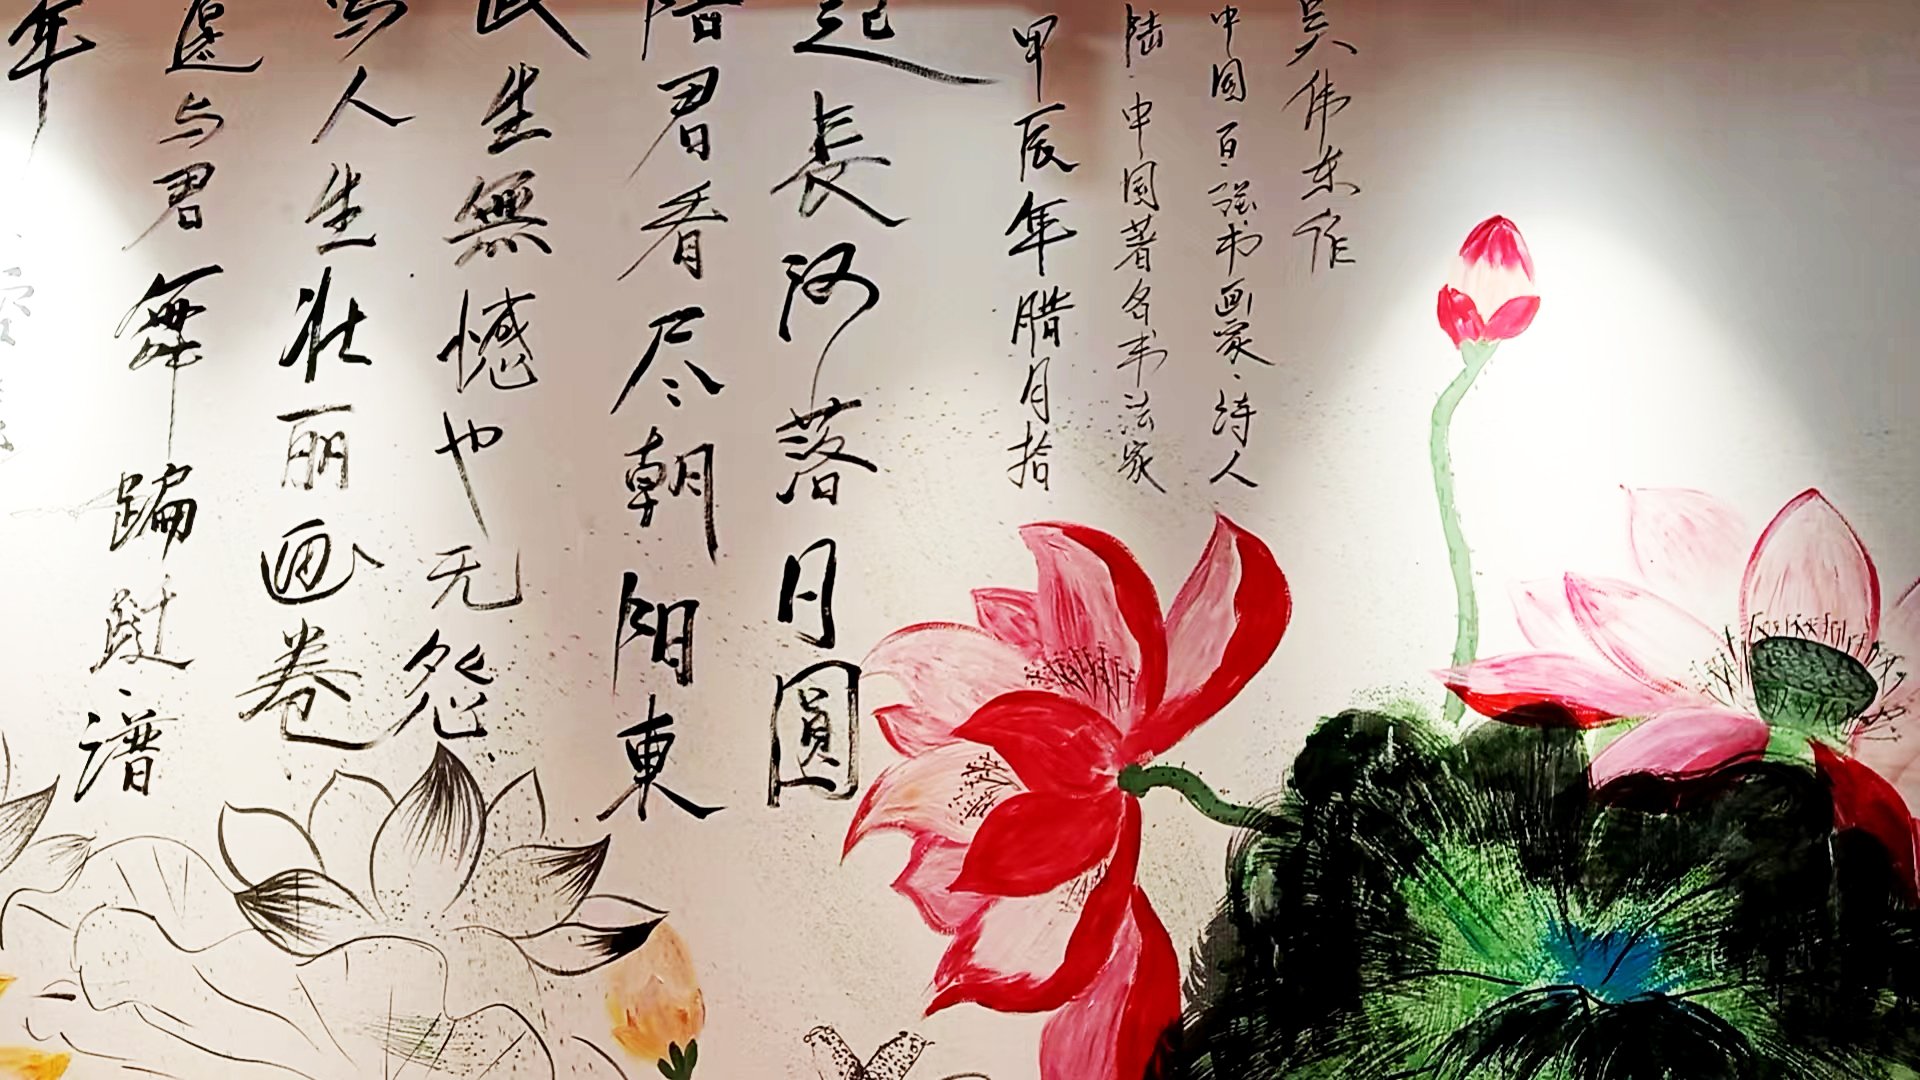 年
還与君舞蹁跹谱
写人生壮丽画卷
生無憾也无怨
陪君看尽朝阳東
起長河落月圓
甲辰年腊月拾
陆.中国著名书法家
中国百强书画家、诗人
吴伟东作